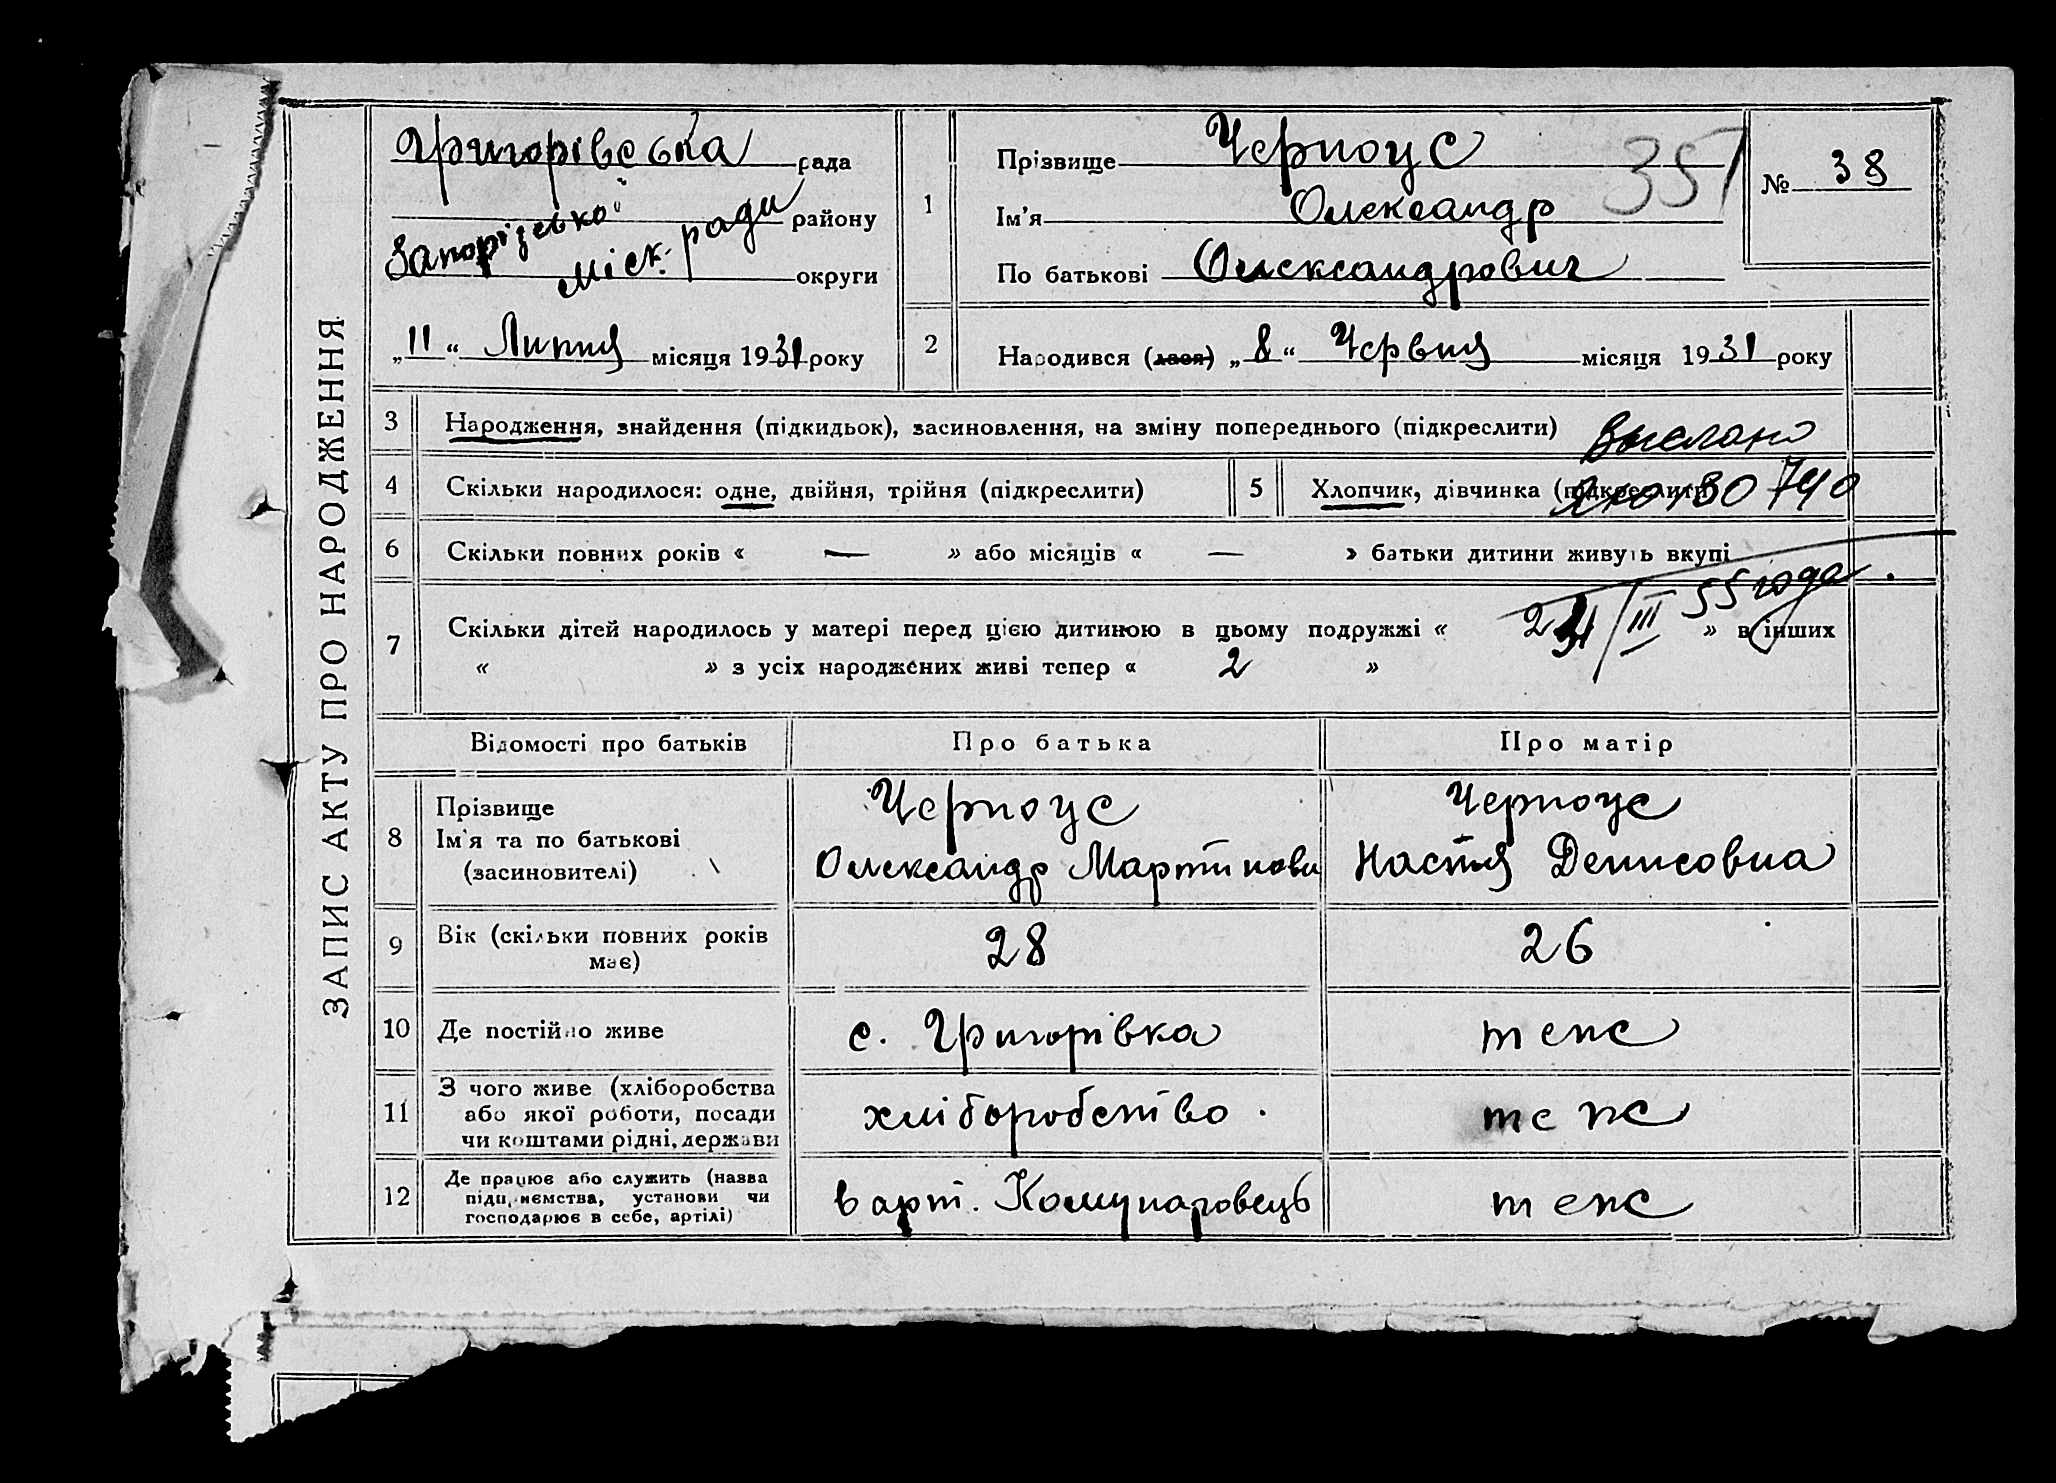 ЗАПИС АКТУ ПРО НАРОДЖЕННЯ
Григорівська рада
району
Запорізької міск. ради округи
„11“ Липня місяця 1931 року
1
Прізвище Черноус
Ім'я Олександр
По батькові Олександрович
351
№ 38
2
Народився (лася) „8“ Червня місяця 1931 року
3 Народження, знайдення (підкидьок), засиновлення, на зміну попереднього (підкреслити)
Выслано
4 Скільки народилося: одне, двійня, трійня (підкреслити)
5 Хлопчик, дівчинка (підкреслити)
80740
6 Скільки повних років « — » або місяців « — » батьки дитини живуть вкупі
24/III 55 года.
7 Скільки дітей народилось у матері перед цією дитиною в цьому подружжі « 2 » в інших
« » з усіх народжених живі тепер « 2 »
Відомості про батьків Про батька Про матір
8 Прізвище
Ім'я та по батькові
(засновителі)
Черноус
Олександр Мартинови
Черноус
Настя Денисовна
9 Вік (скільки повних років
має)
28 26
10 Де постійно живе с. Григорівка теж
11 З чого живе (хліборобства
або якої роботи, посади
чи коштами рідні, держави
хліборобство теж
12 Де працює або служить (назва
підприємства, установи чи
господарює в себе, артілі)
в арт. теж